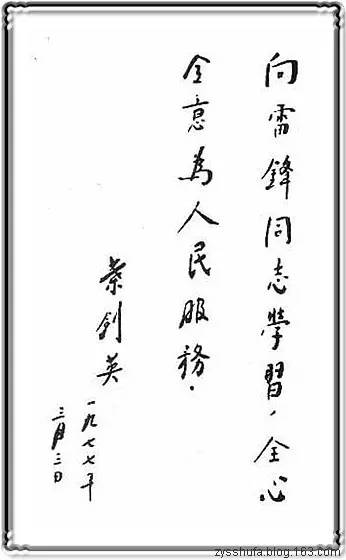 向雷鋒同志學習，全心
全意為人民服務．
葉劍英
一九七七年
三月三日
zysshufa.blog.163.com